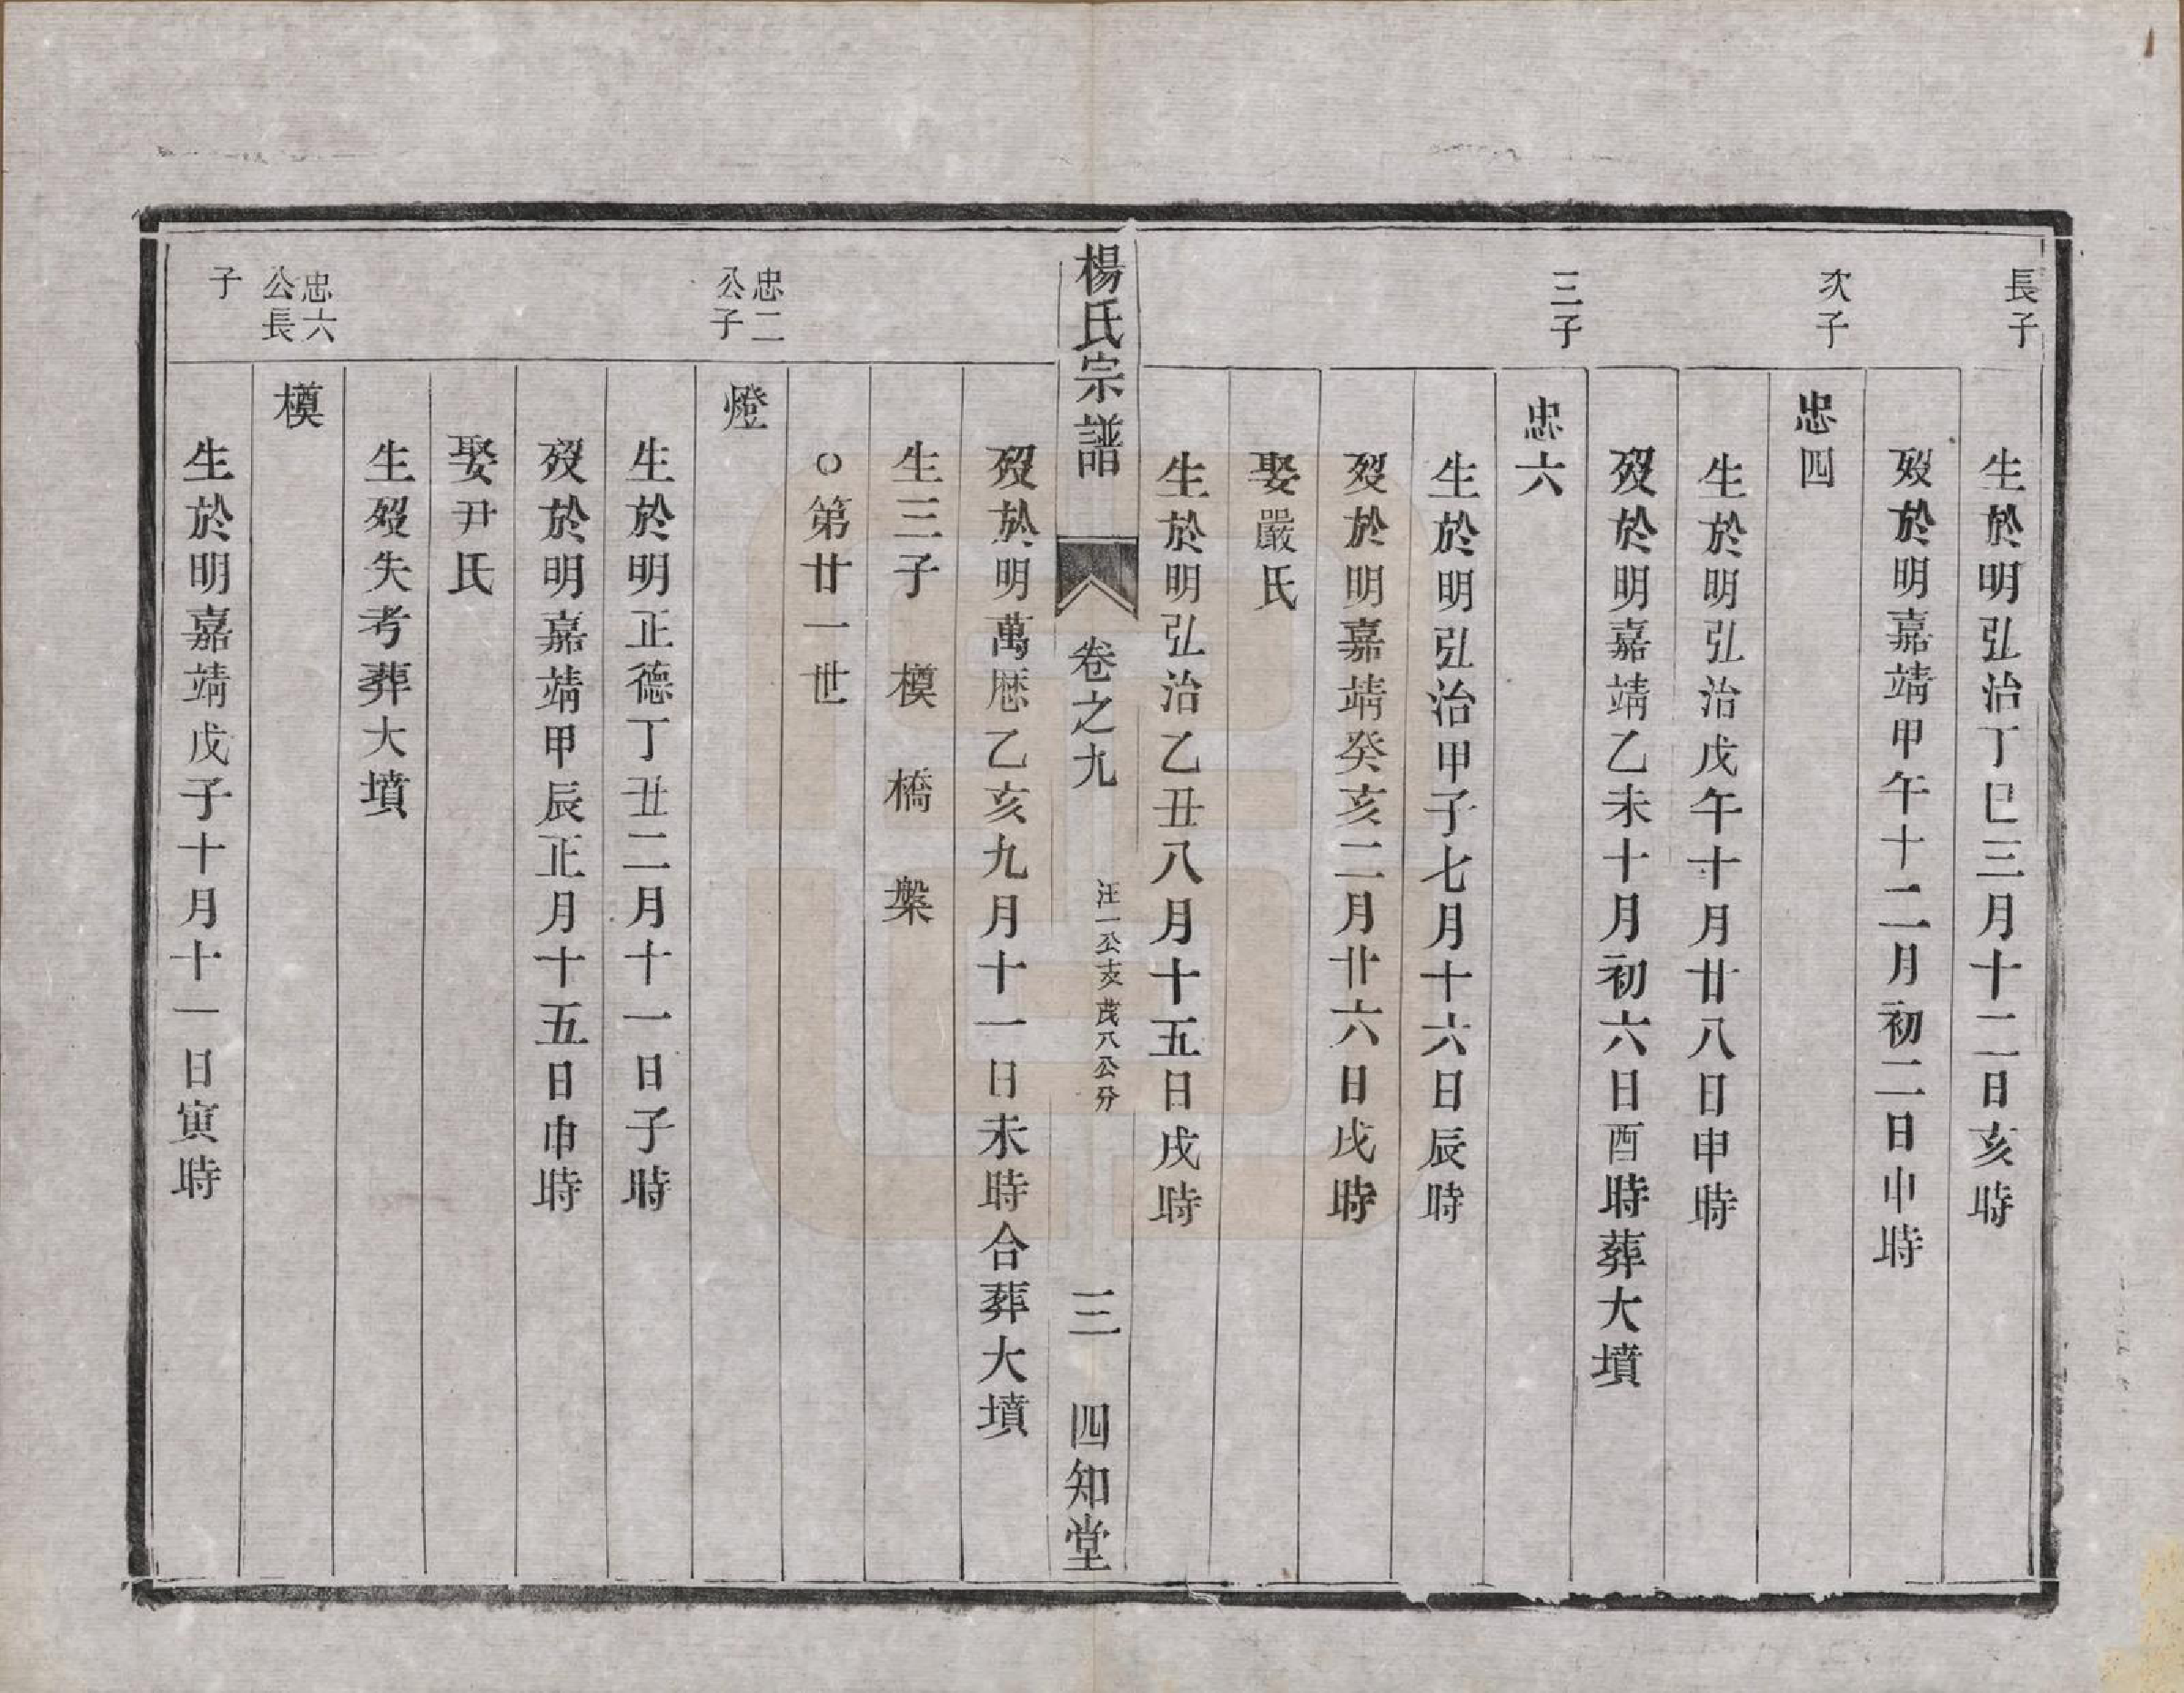 長子
生於明弘治丁巳三月十二日亥時
歿於明嘉靖甲午十二月初二日申時
次子
忠四
生於明弘治戊午十月廿八日申時
歿於明嘉靖乙未十月初六日酉時葬大墳
三子
忠六
生於明弘治甲子七月十六日辰時
歿於明嘉靖癸亥二月廿六日戌時
娶嚴氏
生於明弘治乙丑八月十五日戌時
楊氏宗譜
卷之九
汪一公支茂八公分
三
四知堂
歿於明萬歷乙亥九月十一日未時合葬大墳
生三子 模 橋 槃
○第廿一世
忠二
公子
燈
生於明正德丁丑二月十一日子時
歿於明嘉靖甲辰正月十五日申時
娶尹氏
生歿失考葬大墳
忠六
公長
子
模
生於明嘉靖戊子十月十一日寅時